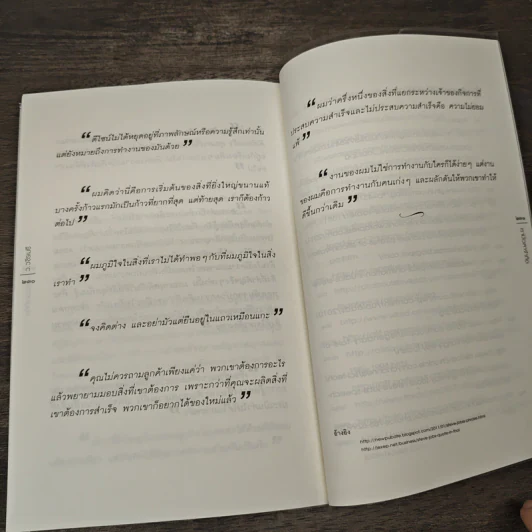 “ดีไซน์ไม่ได้หยุดอยู่ที่ภาพลักษณ์หรือความรู้สึกเท่านั้น
แต่ยังหมายถึงการทำงานของมันด้วย ”
“ผมคิดว่านี่คือการเริ่มต้นของสิ่งที่ยิ่งใหญ่ขนานแท้
บางครั้งก้าวแรกมักเป็นก้าวที่ยากที่สุด แต่ท้ายสุด เราก็ต้องก้าว
ต่อไป ”
“ผมภูมิใจในสิ่งที่เราไม่ได้ทำพอๆ กับที่ผมภูมิใจในสิ่ง
เราทำ ”
“จงคิดต่าง และอย่ามัวแต่ยืนอยู่ในแถวเหมือนแกะ ”
“คุณไม่ควรถามลูกค้าเพียงแค่ว่า พวกเขาต้องการอะไร
แล้วพยายามมอบสิ่งที่เขาต้องการ เพราะกว่าที่คุณจะผลิตสิ่งที่
เขาต้องการสำเร็จ พวกเขาก็อยากได้ของใหม่แล้ว ”
“ผมว่าครึ่งหนึ่งของสิ่งที่แยกระหว่างเจ้าของกิจการที่
ประสบความสำเร็จและไม่ประสบความสำเร็จคือ ความไม่ยอม
แพ้ ”
“งานของผมไม่ใช่การทำงานกับใครก็ได้ง่ายๆ แต่งาน
ของผมคือการทำงานกับคนเก่งๆ และผลักดันให้พวกเขาทำให้
ดีขึ้นกว่าเดิม ”
อ้างอิง